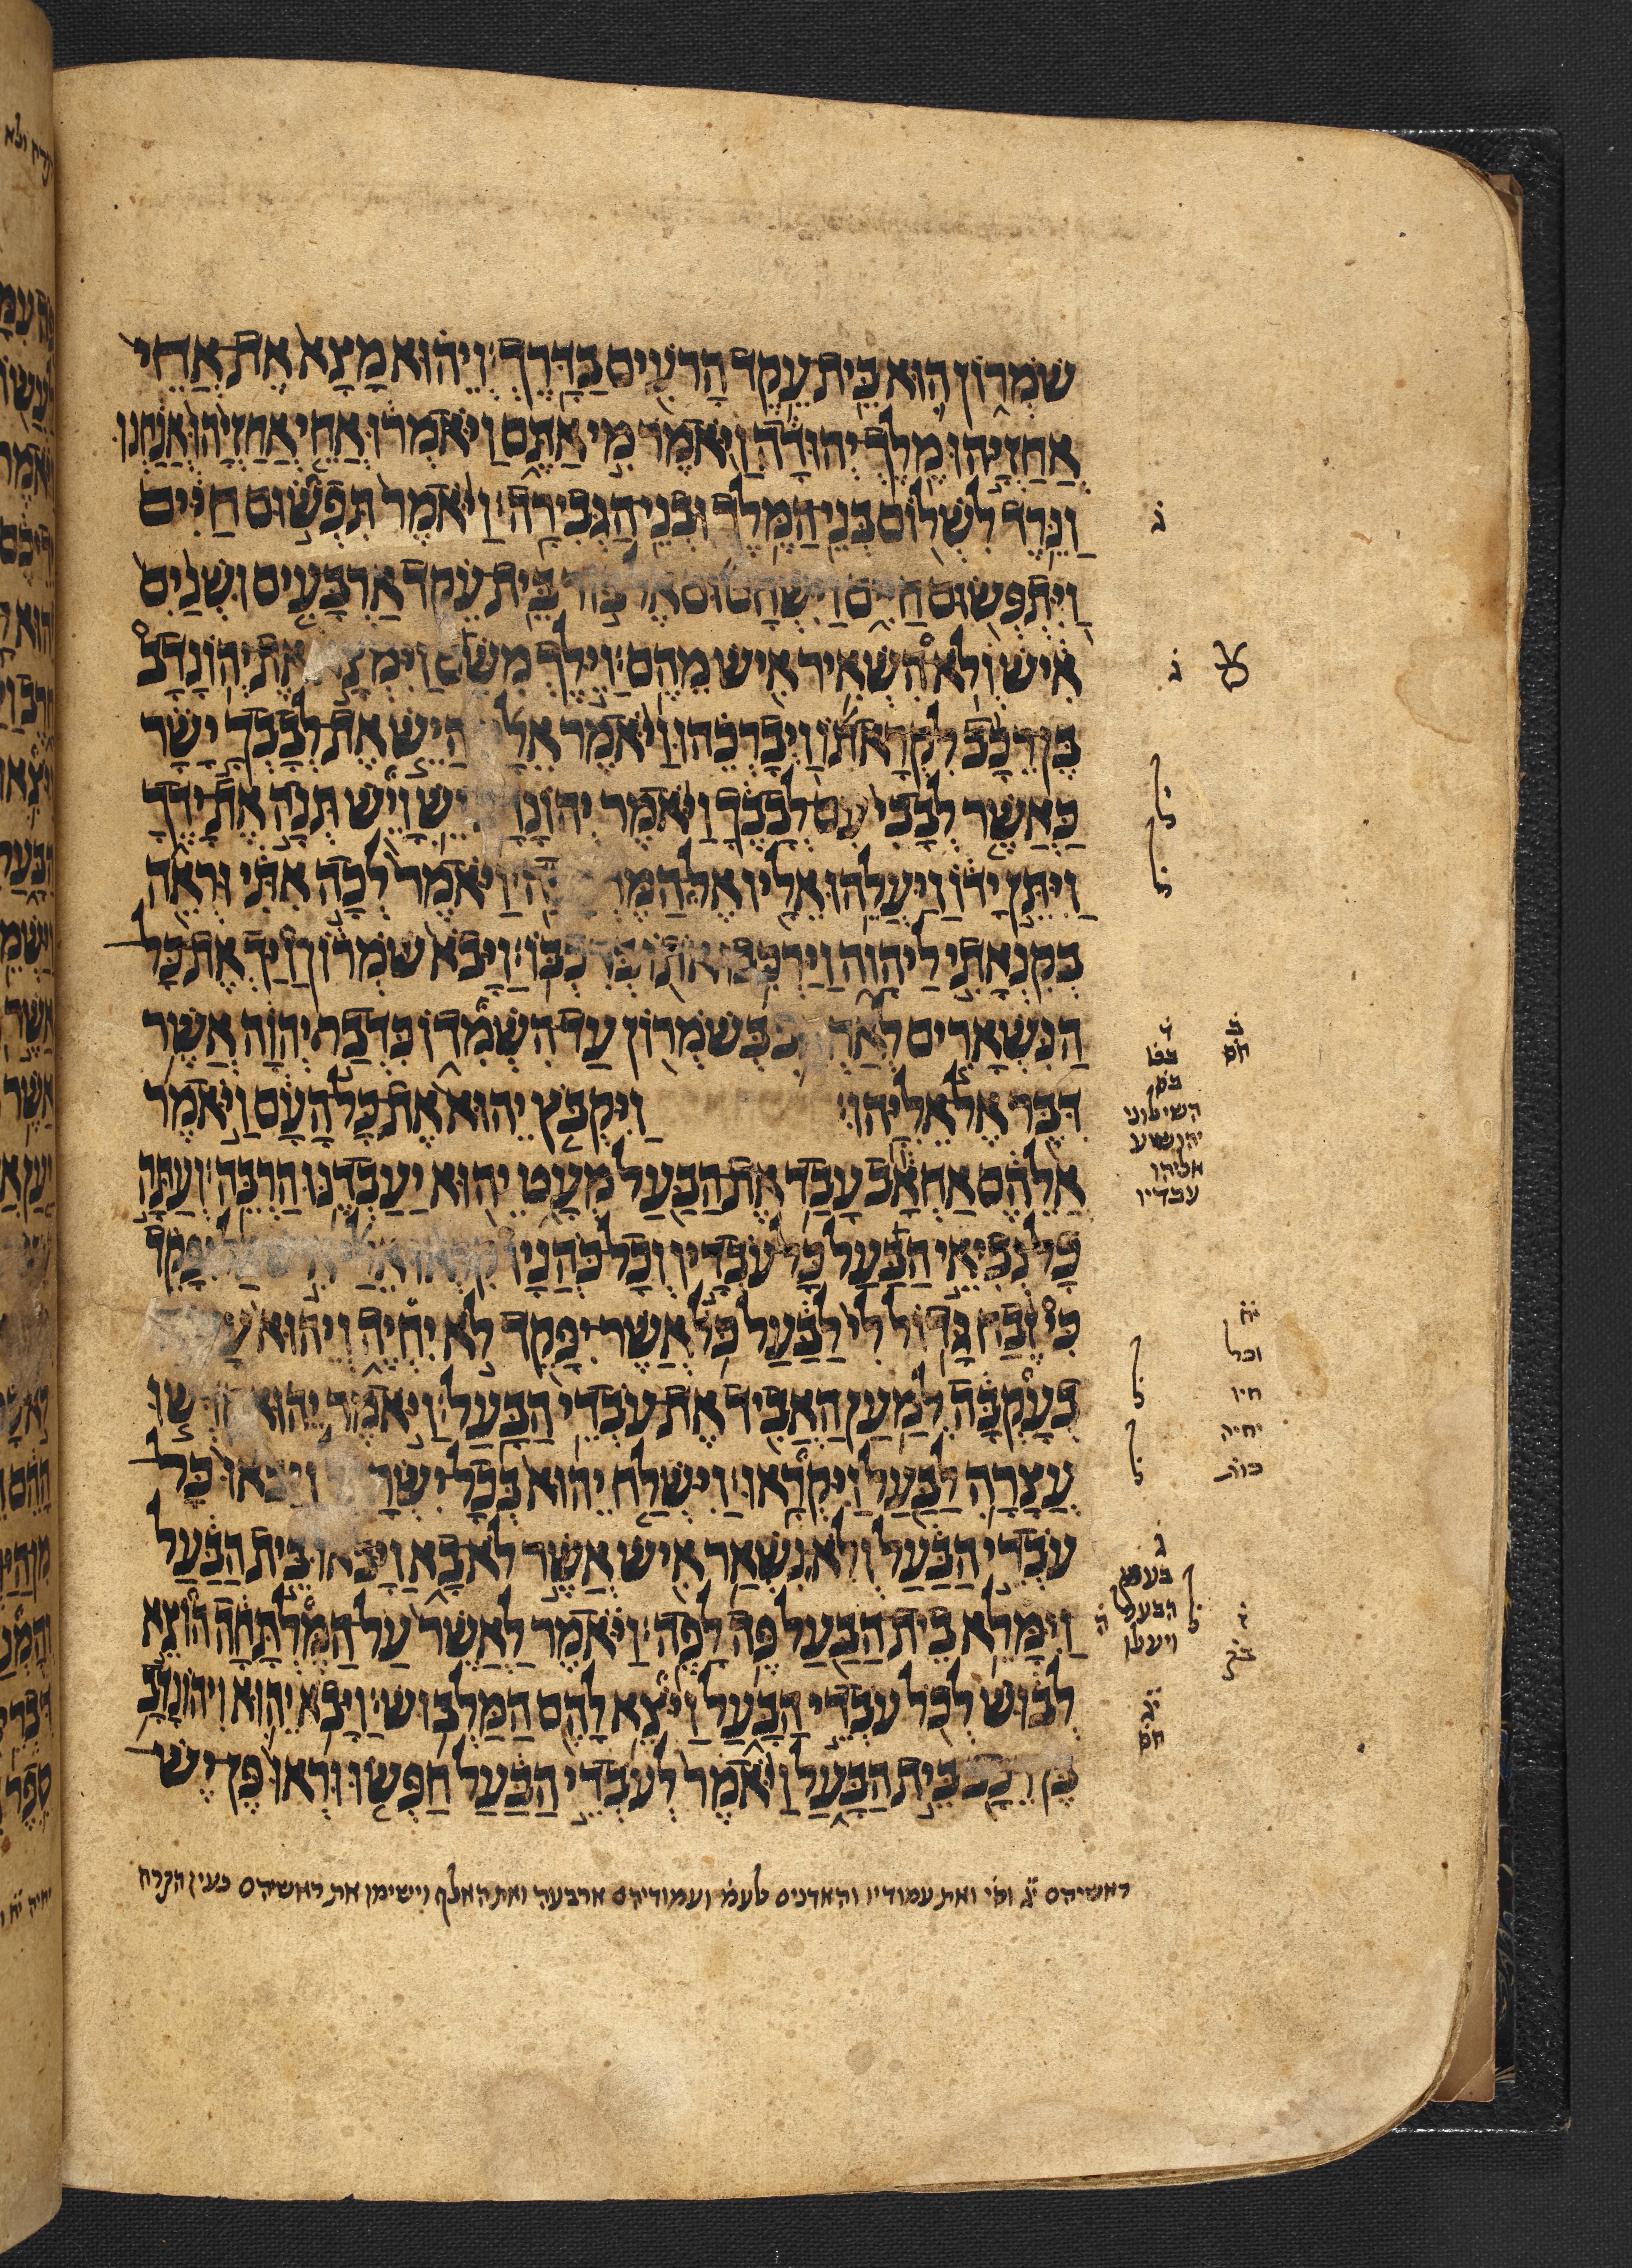 שֹׁמְרוֹן הוּא בֵּית עֵקֶד הָרֹעִים בַּדָּרֶךְ׃ וְיֵהוּא מָצָא אֶת אֲחֵי
אֲחַזְיָהוּ מֶלֶךְ יְהוּדָה וַיֹּאמֶר מִי אַתֶּם וַיֹּאמְרוּ אֲחֵי אֲחַזְיָהוּ אֲנַחְנוּ
וַנֵּרֶד לִשְׁלוֹם בְּנֵי הַמֶּלֶךְ וּבְנֵי הַגְּבִירָה׃ וַיֹּאמֶר תִּפְשׂוּם חַיִּים
ג
וַיִּתְפְּשׂוּם חַיִּים וַיִּשְׁחָטוּם אֶל בּוֹר בֵּית עֵקֶד אַרְבָּעִים וּשְׁנַיִם
אִישׁ וְלֹא הִשְׁאִיר אִישׁ מֵהֶם׃ וַיֵּלֶךְ מִשָּׁם וַיִּמְצָא אֶת יְהוֹנָדָב
ג
בֶּן רֵכָב לִקְרָאתוֹ וַיְבָרְכֵהוּ וַיֹּאמֶר אֵלָיו הֲיֵשׁ אֶת לְבָבְךָ יָשָׁר
כַּאֲשֶׁר לְבָבִי עִם לְבָבֶךָ וַיֹּאמֶר יְהוֹנָדָב יֵשׁ וָיֵשׁ תְּנָה אֶת יָדֶךָ
וַיִּתֵּן יָדוֹ וַיַּעֲלֵהוּ אֵלָיו אֶל הַמֶּרְכָּבָה׃ וַיֹּאמֶר לְכָה אִתִּי וּרְאֵה
בְּקִנְאָתִי לַיהוָה וַיַּרְכִּבוּ אֹתוֹ בְּרִכְבּוֹ׃ וַיָּבֹא שֹׁמְרוֹן וַיַּךְ אֶת כָּל
הַנִּשְׁאָרִים לְאַחְאָב בְּשֹׁמְרוֹן עַד הִשְׁמִדוֹ כִּדְבַר יְהוָה אֲשֶׁר
דִּבֶּר אֶל אֵלִיָּהוּ׃ וַיִּקְבֹּץ יֵהוּא אֶת כָּל הָעָם וַיֹּאמֶר
השילוני
יהושע
אליהו
עבדיו
אֲלֵהֶם אַחְאָב עָבַד אֶת הַבַּעַל מְעָט יֵהוּא יַעַבְדֶנּוּ הַרְבֵּה׃ וְעַתָּה
כָל נְבִיאֵי הַבַּעַל כָּל עֹבְדָיו וְכָל כֹּהֲנָיו קִרְאוּ אֵלַי אִישׁ אַל יִפָּקֵד
כִּי זֶבַח גָּדוֹל לִי לַבַּעַל כֹּל אֲשֶׁר יִפָּקֵד לֹא יִחְיֶה וְיֵהוּא עָשָׂה
יח
וכל
חיו
יחיה
כות
בְעָקְבָּה לְמַעַן הַאֲבִיד אֶת עֹבְדֵי הַבָּעַל׃ וַיֹּאמֶר יֵהוּא קַדְּשׁוּ
עֲצָרָה לַבַּעַל וַיִּקְרָאוּ׃ וַיִּשְׁלַח יֵהוּא בְּכָל יִשְׂרָאֵל וַיָּבֹאוּ כָּל
עֹבְדֵי הַבַּעַל וְלֹא נִשְׁאַר אִישׁ אֲשֶׁר לֹא בָא וַיָּבֹאוּ בֵּית הַבַּעַל
וַיִּמָּלֵא בֵית הַבַּעַל פֶּה לָפֶה׃ וַיֹּאמֶר לַאֲשֶׁר עַל הַמֶּלְתָּחָה הוֹצֵא
ג
הבעל
לְבוּשׁ לְכֹל עֹבְדֵי הַבָּעַל וַיֹּצֵא לָהֶם הַמַּלְבּוּשׁ׃ וַיָּבֹא יֵהוּא וִיהוֹנָדָב
יג
חס
בֶּן רֵכָב בֵּית הַבָּעַל וַיֹּאמֶר לְעֹבְדֵי הַבַּעַל חַפְּשׂוּ וּרְאוּ פֶּן יֶשׁ
ראשיהם יג וס׳ ואת עמודיו והאדנים לעמ׳ ועמודיהם ארבעה ואת האלף וישימו את ראשיהם כעין הקרח